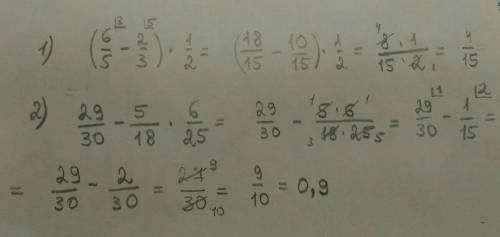 1) (6/5 ⌊3 - 2/3 ⌊5) · 1/2 = (18/15 - 10/15) · 1/2 = 8 4 · 1 / 15 · 2 1 = 4/15
2) 29/30 - 5/18 · 6/25 = 29/30 - 1 5 · 6 1 / 3 18 · 25 5 = 29/30 ⌊1 - 1/15 ⌊2 =
= 29/30 - 2/30 = 27 9 / 30 10 = 9/10 = 0,9